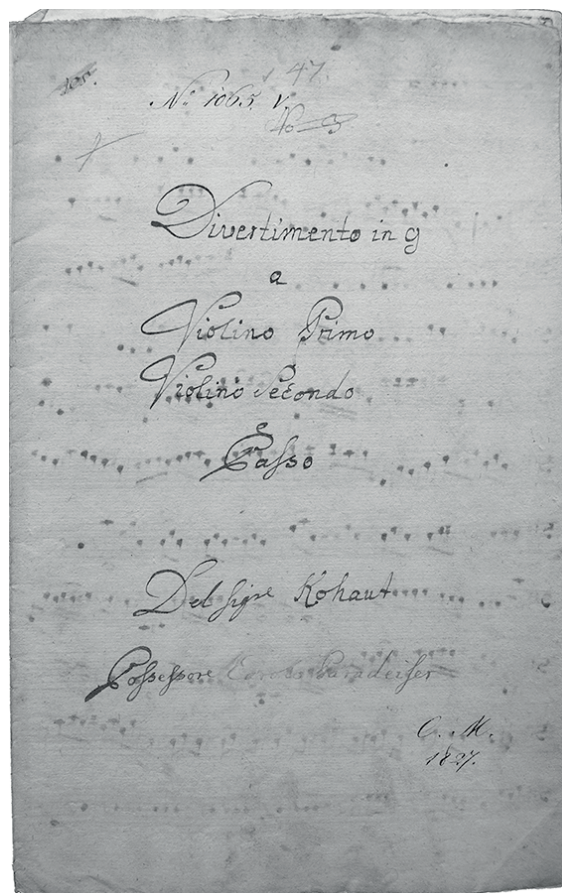 47.
No 1065 V.
No 3
Divertimento in g
a
Violino Primo
Violino Secondo
e
Basso
Del Sigre Kohaut
Possessore Paradeiser
C. M.
1827.